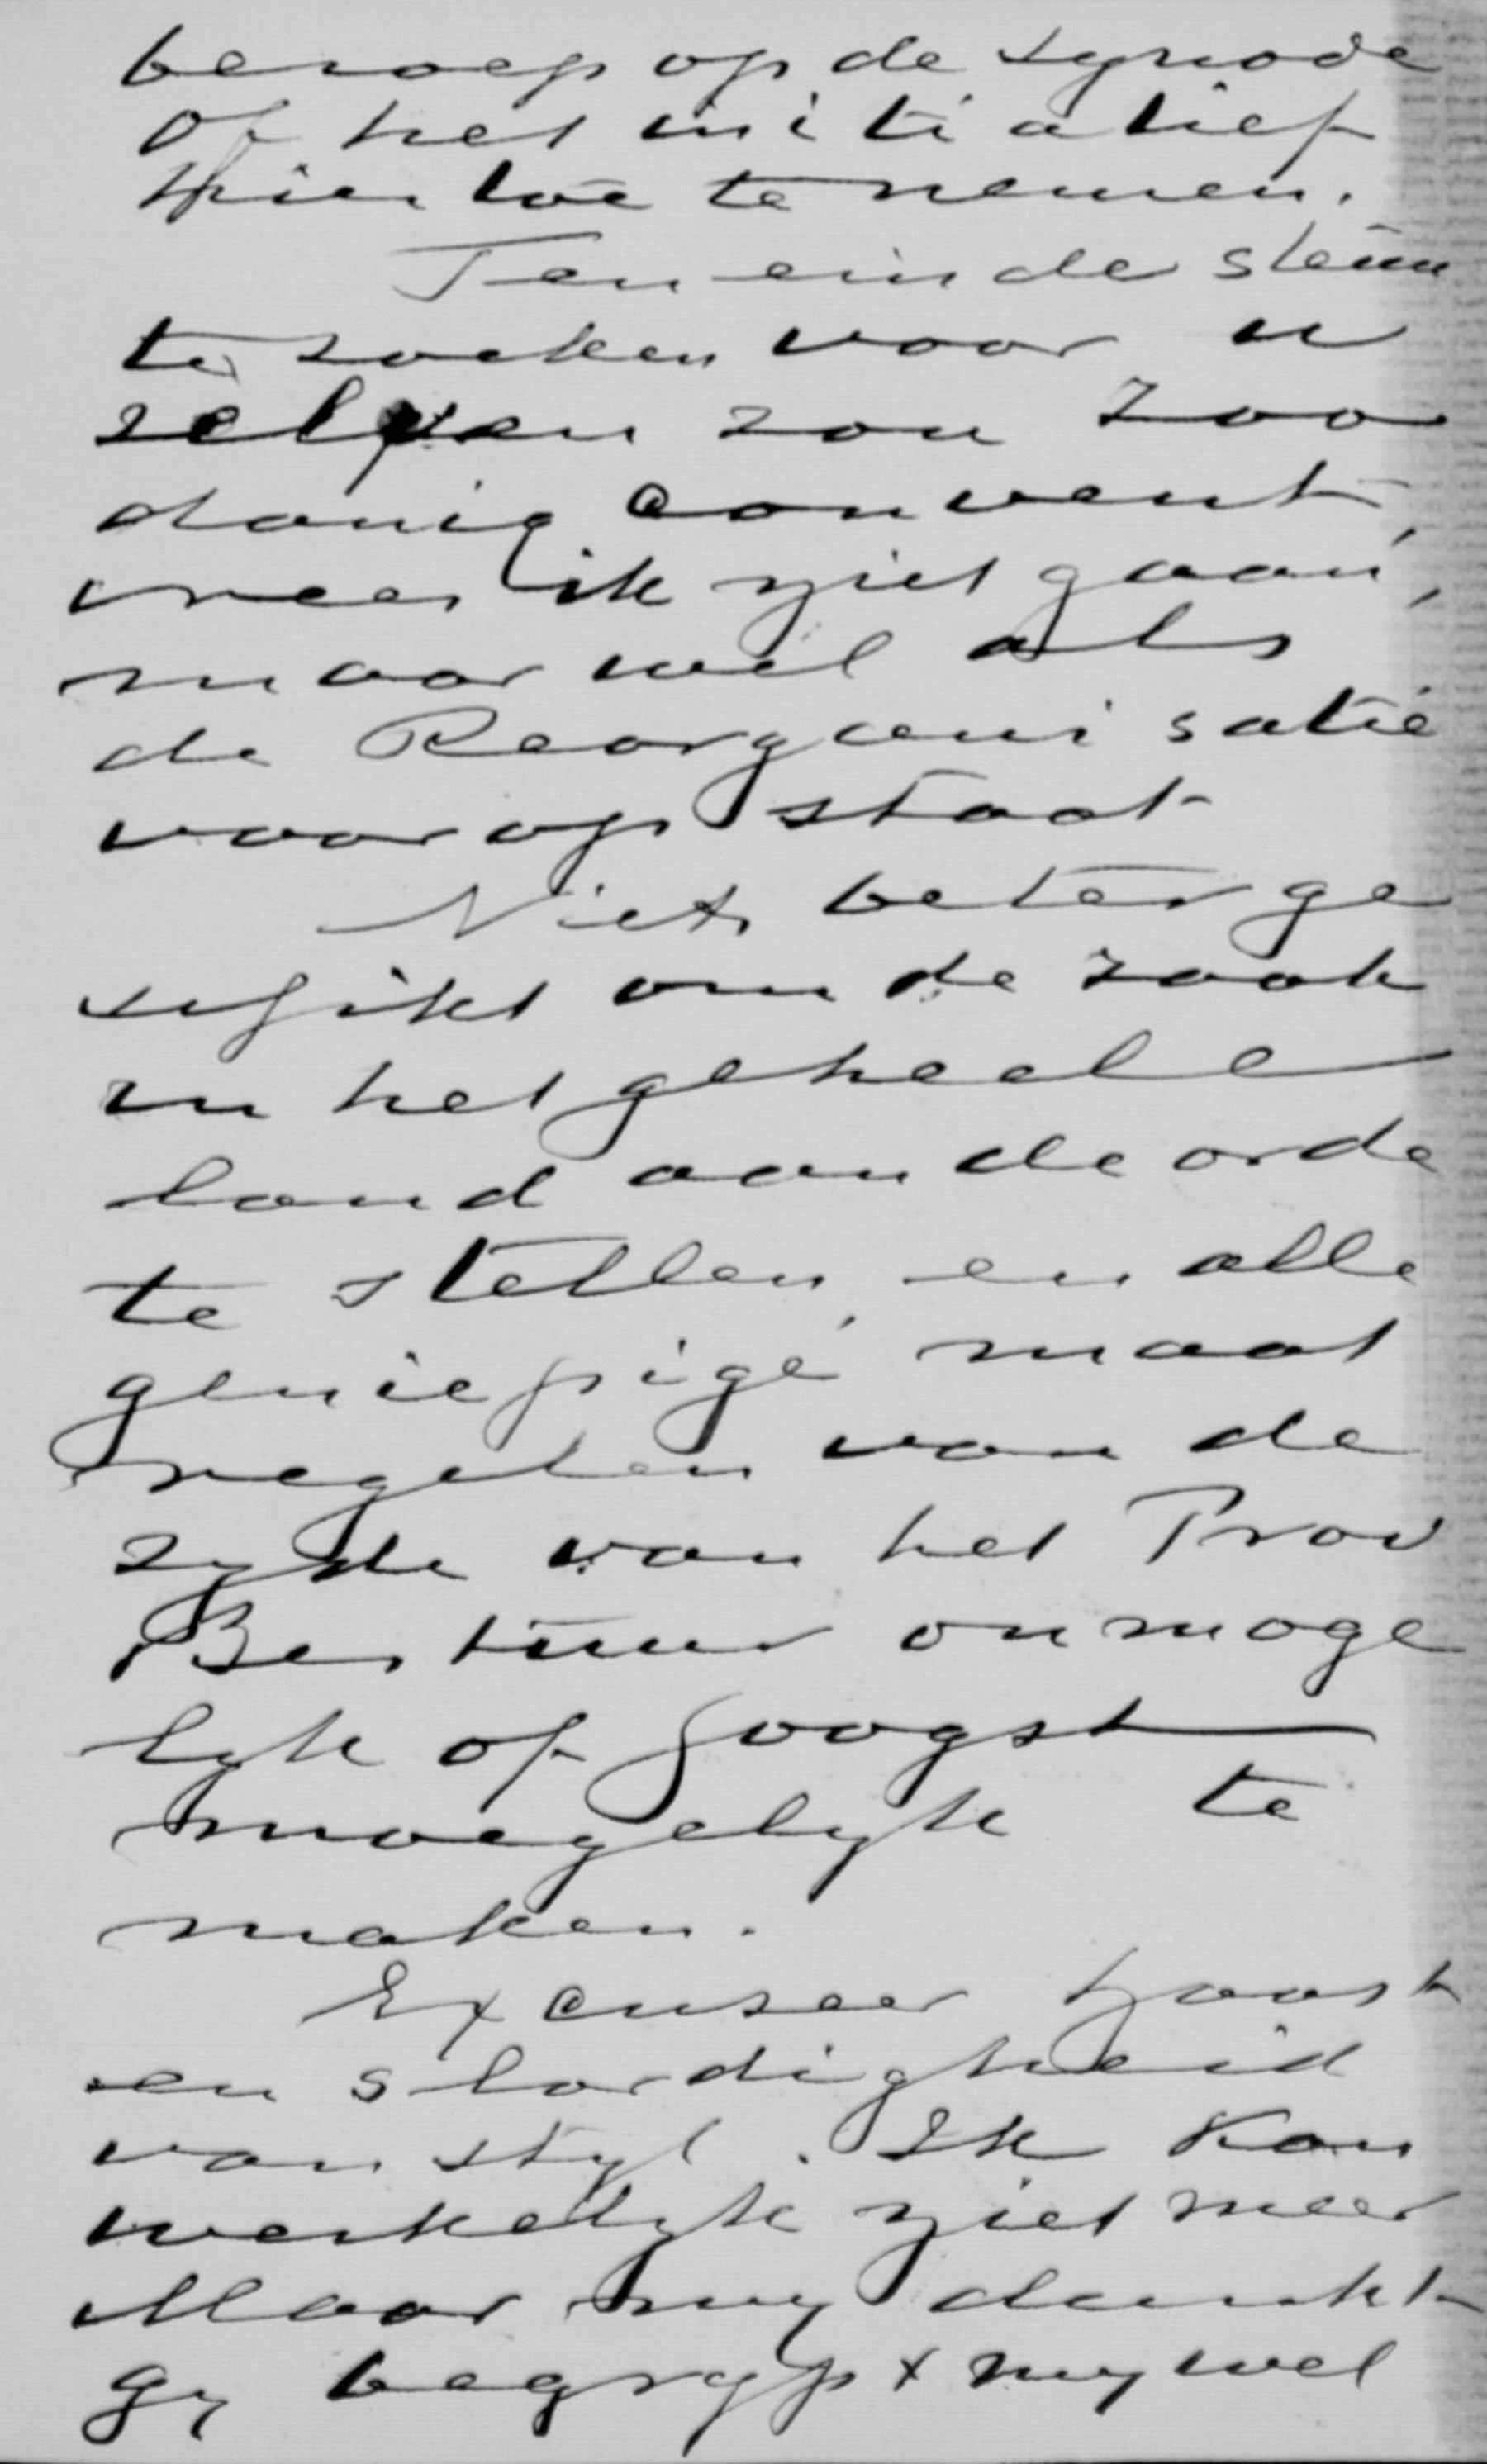 beroep op de synode
of het initiatief
hiertoe te nemen.
Ten einde steun
te zoeken voor u
zelven zou zoo
danig convent,
vrees ik niet gaan,
maar wel als
de Reorganisatie
voorop staat
Niets beter ge
schikt om de zaak
in het geheele
land aan de orde
te stellen, en alle
geniepige maat
regelen van de
zyde van het Prov
Bestuur onmoge
lyk of hoogst
moegelyk te
maken.
Excuseer haast
en slordigheid
van styl. Ik kan
werkelyk niet meer
Maar my dunkt
gy begrypt my wel